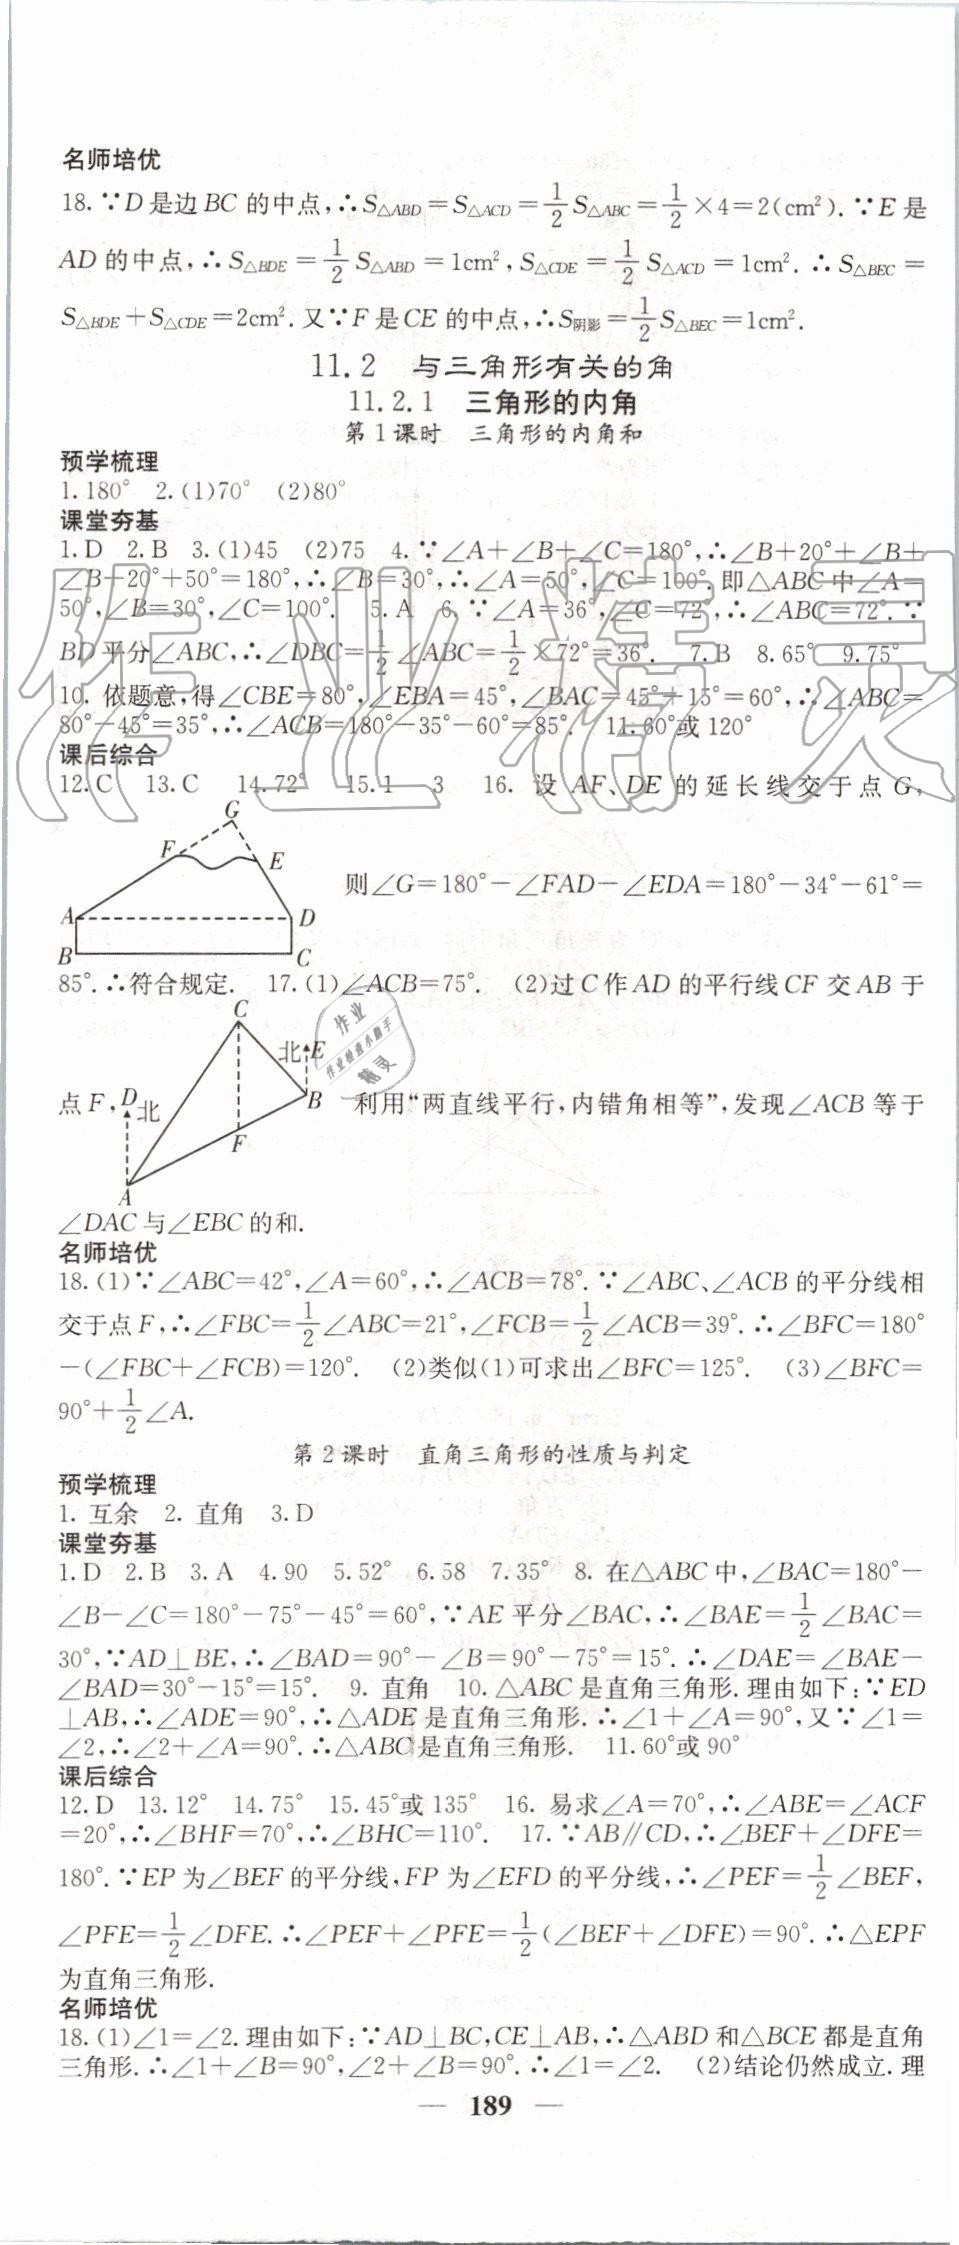 名师培优
18. ∵D是边BC的中点,∴S△ABD=S△ACD=1/2 S△ABC=1/2×4=2(cm²). ∵E是
AD的中点,∴S△BDE=1/2 S△ABD=1cm²,S△CDE=1/2 S△ACD=1cm². ∴S△BEC=
S△BDE+S△CDE=2cm². 又∵F是CE的中点,∴S阴影=1/2 S△BEC=1cm².
11.2 与三角形有关的角
11.2.1 三角形的内角
第1课时 三角形的内角和
预学梳理
1.180° 2.(1)70° (2)80°
课堂夯基
1.D 2.B 3.(1)45 (2)75 4.∵∠A+∠B+∠C=180°,∴∠B+20°+∠B+
∠B+20°+50°=180°,∴∠B=30°,∴∠A=50°,∠C=100°. 即△ABC中∠A=
50°,∠B=30°,∠C=100°. 5.A 6.∵∠A=36°,∠C=72°,∴∠ABC=72°.∵
BD平分∠ABC,∴∠DBC=1/2∠ABC=1/2×72°=36°. 7.B 8.65° 9.75°
10. 依题意,得∠CBE=80°,∠EBA=45°,∠BAC=45°+15°=60°,∴∠ABC=
80°-45°=35°,∴∠ACB=180°-35°-60°=85°. 11.60°或120°
课后综合
12.C 13.C 14.72° 15.1 3 16. 设AF、DE的延长线交于点G,
G
F
E
则∠G=180°-∠FAD-∠EDA=180°-34°-61°=
A
D
B
C
85°.∴符合规定. 17.(1)∠ACB=75°. (2)过C作AD的平行线CF交AB于
C
北 E
点F,
D 北
B
利用“两直线平行,内错角相等”,发现∠ACB等于
F
A
∠DAC与∠EBC的和.
名师培优
18.(1)∵∠ABC=42°,∠A=60°,∴∠ACB=78°.∵∠ABC、∠ACB的平分线相
交于点F,∴∠FBC=1/2∠ABC=21°,∠FCB=1/2∠ACB=39°.∴∠BFC=180°
-(∠FBC+∠FCB)=120°. (2)类似(1)可求出∠BFC=125°. (3)∠BFC=
90°+1/2∠A.
第2课时 直角三角形的性质与判定
预学梳理
1. 互余 2. 直角 3.D
课堂夯基
1.D 2.B 3.A 4.90 5.52° 6.58 7.35° 8. 在△ABC中,∠BAC=180°-
∠B-∠C=180°-75°-45°=60°,∵AE平分∠BAC,∴∠BAE=1/2∠BAC=
30°,∵AD⊥BE,∴∠BAD=90°-∠B=90°-75°=15°.∴∠DAE=∠BAE-
∠BAD=30°-15°=15°. 9. 直角 10.△ABC是直角三角形.理由如下:∵ED
⊥AB,∴∠ADE=90°,∴△ADE是直角三角形.∴∠1+∠A=90°,又∵∠1=
∠2,∴∠2+∠A=90°.∴△ABC是直角三角形. 11.60°或90°
课后综合
12.D 13.12° 14.75° 15.45°或135° 16. 易求∠A=70°,∴∠ABE=∠ACF
=20°,∴∠BHF=70°,∴∠BHC=110°. 17.∵AB∥CD,∴∠BEF+∠DFE=
180°.∵EP为∠BEF的平分线,FP为∠EFD的平分线,∴∠PEF=1/2∠BEF,
∠PFE=1/2∠DFE.∴∠PEF+∠PFE=1/2(∠BEF+∠DFE)=90°.∴△EPF
为直角三角形.
名师培优
18.(1)∠1=∠2.理由如下:∵AD⊥BC,CE⊥AB,∴△ABD和△BCE都是直角
三角形.∴∠1+∠B=90°,∠2+∠B=90°.∴∠1=∠2. (2)结论仍然成立.理
— 189 —
作业精灵
作业
作业检查小助手
精灵